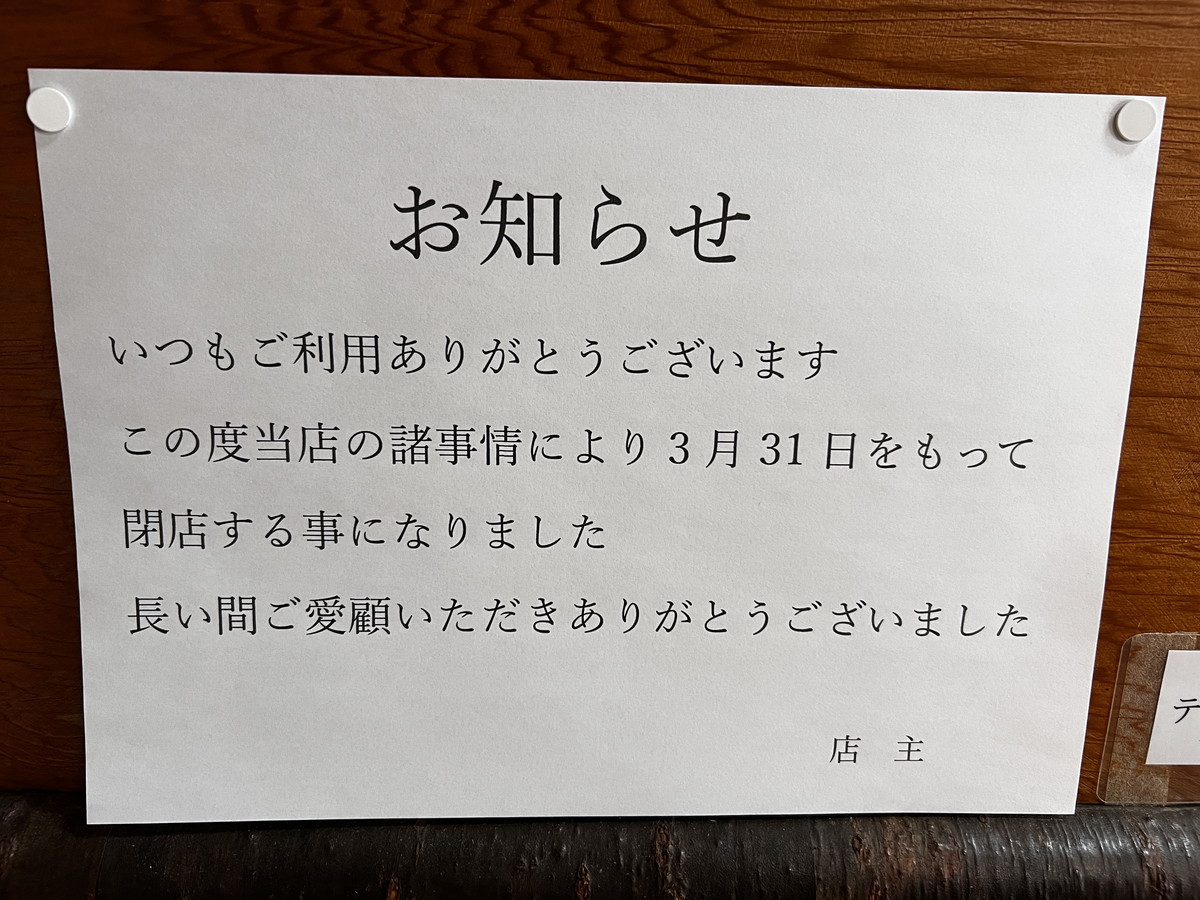 お知らせ
いつもご利用ありがとうございます
この度当店の諸事情により3月31日をもって
閉店する事になりました
長い間ご愛顧いただきありがとうございました
店　主
テ